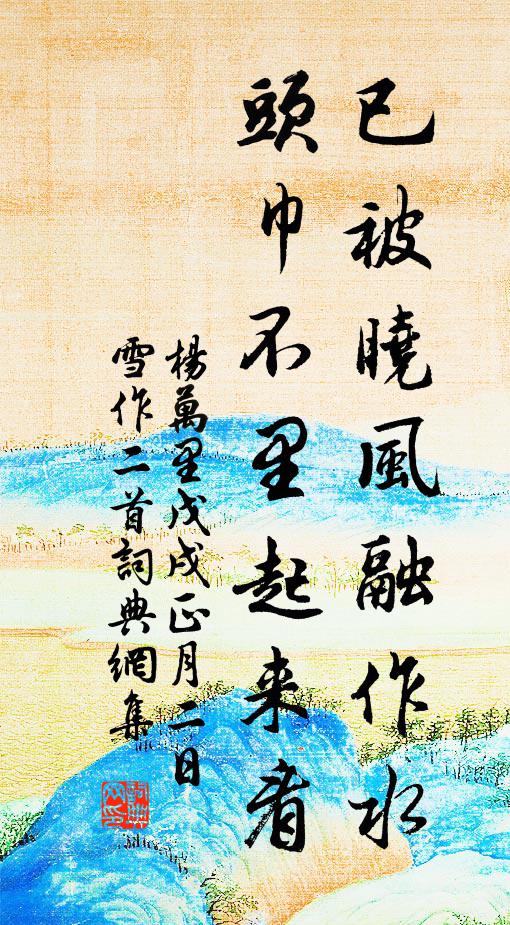 已被曉風融作水
頭巾不里起来看
楊萬里戊戌正月二日
雪作二首詞典網集